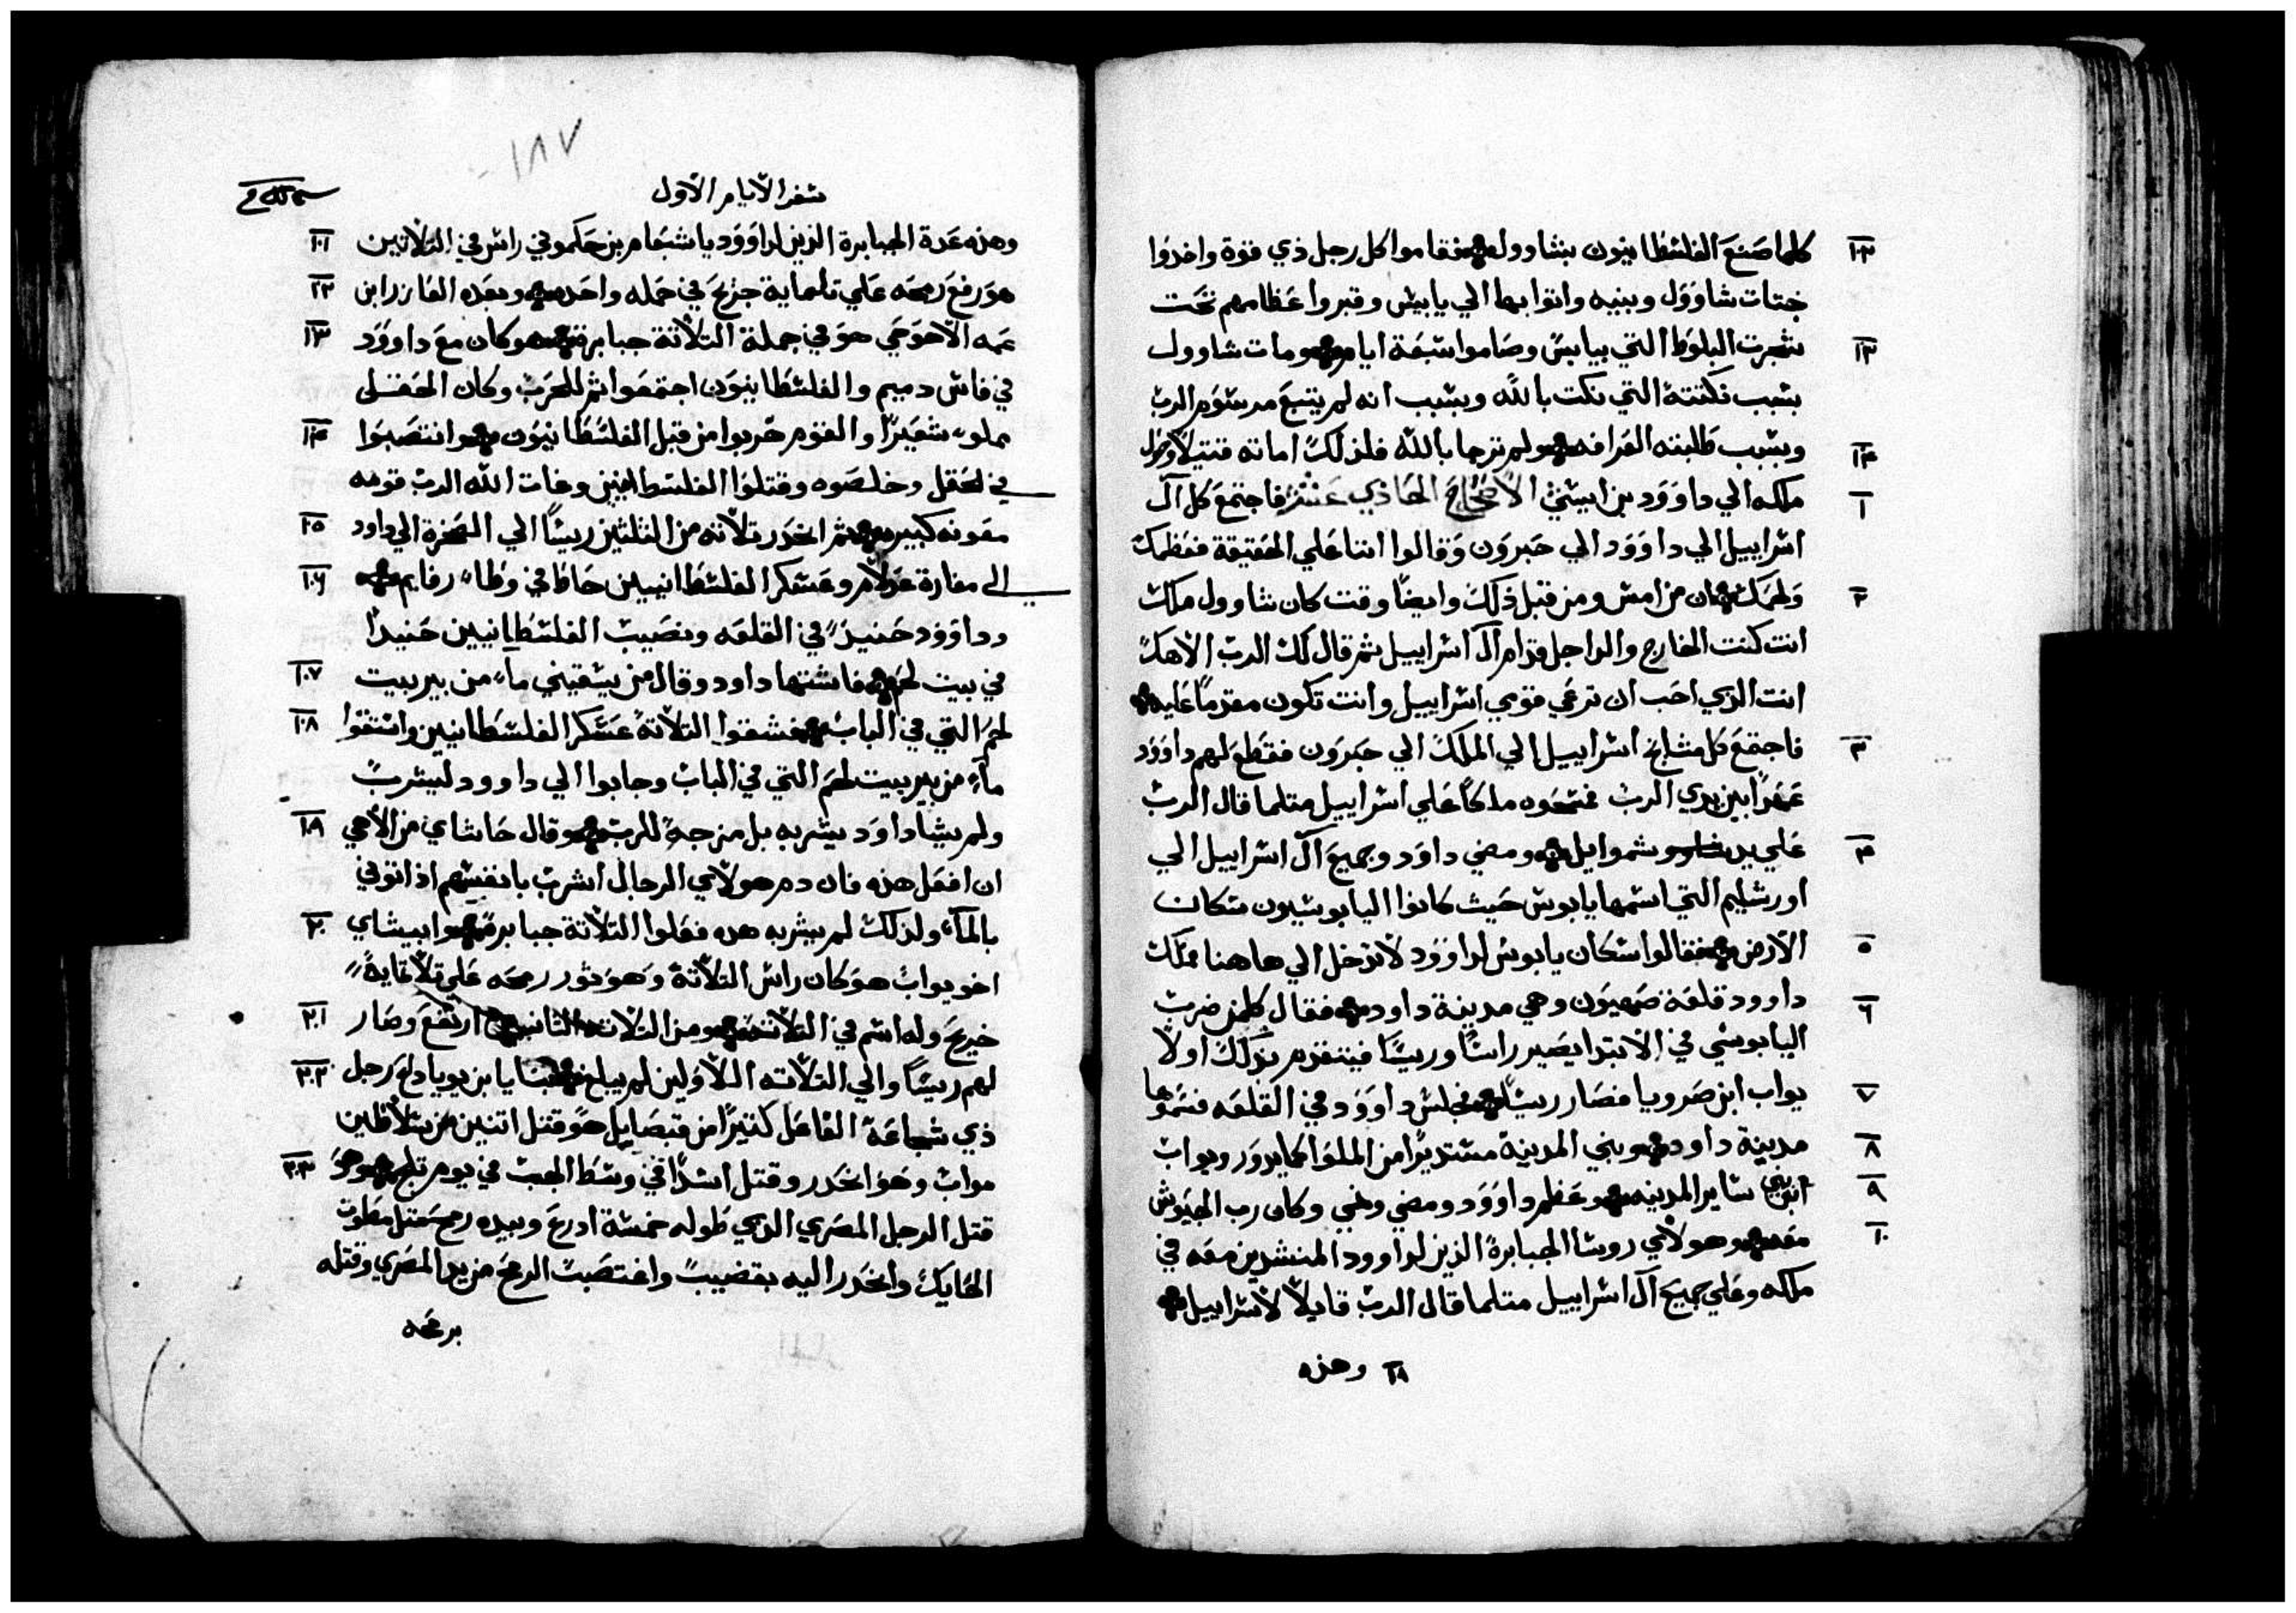 كلما صنع الفلسطانيون بشاوول فقاموا كل رجل ذي قوة واخدوا
جتات شاوول وبنيه واتوا بها الي يابيس وقبروا عظامهم تحت
شجرت البلوط التي بيابس وصاموا سبعة ايام ومات شاوول
بسبب نكتته التي نكت بالله وبسبب انه لم يتبع مرسوم الرب
وبسبب طلبته العرافه ولم ترجا بالله فلذلك اماته قتيلا
ملكه الي داوود بن ايسي الاصحاح الحادي عشر فاجتمع كل آل
اسراييل الي داوود الي حبرون وقالوا اننا علي الحقيقة فعظمك
ولحمك ان من امس ومن قبل ذلك وايضا وقت كان شاوول ملك
انت كنت الخارج والداخل قدام آل اسراييل ثم قال لك الرب الاهك
انت الذي احب ان ترعي قومي اسراييل وانت تكون مقدما عليه
فاجتمع كل مشايخ اسراييل الي الملك الي حبرون فقطع لهم داوود
عهدا بين يدي الرب فمسحوه ملكا علي اسراييل متلما قال الرب
علي يد شموايل ومضي داود وجميع آل اسراييل الي
اورشليم التي اسمها يابوس حيث كانوا اليابوسيون سكان
الارض فقالوا سكان يابوس لداوود لا تدخل الي هاهنا فملك
داوود قلعة صهيون وهي مدينة داود فقال كلمن ضرب
اليابوسي في الابتدا يصير راسا وريسا فيتقدم بذلك اولا
يواب ابن صرويا فصار ريسا فجلس داوود في القلعه فسموها
مدينة داود وبني المدينة مستديرا من الملوا كما يدور ويواب
ابني ساير المدينه وعظم داوود ومضي ونمي وكان رب الجيوش
معه وهولاي روسا الجبابرة الذين لداوود المنشدين معه في
ملكه وعلي جميع آل اسراييل متلما قال الرب قايلا لاسراييل
وهذه
١٨٧
سفر الايام الاول
وهذه عدة الجبابرة الذين لداوود ياشبعام بن حكموني راس في التلاتين
هو رفع رمحه علي تلتماية جريح في حمله واحده وبعده العازر ابن
عمه الاحوحي هو في جملة التلاتة جبابرة هو كان مع داوود
في فاس دميم والفلسطانيون اجتمعوا ثم للحرب وكان الحقلى
مملوء شعيرا والقوم هربوا من قبل الفلسطانيون وانتصبوا
في الحقل وخلصوه وقتلوا الفلسطانيين وغات الله الرب قومه
مغوته كبيره ثم انحدر تلاته من التلتين ريسا الي الصخرة الي داود
الى مغارة عدلام وعسكر الفلسطانيين حاط في وطاء رفايم
وداوود حنيذ في القلعه ونصيب الفلسطانيين حنيدا
في بيت لحم فاشتها داود وقال من يسقيني ماء من بير بيت
لحم التي في الباب فشقوا التلاتة عسكر الفلسطانيين واستقوا
ماء من بير بيت لحم التي في الباب وجابوا الي داوود ليشرب
ولم يشا داود يشربه بل مزجه للرب وقال حاشاي من الاهي
ان افعل هذه فان دم هولاي الرجال اشرب بانفسهم اذ اتوني
بالماء ولذلك لم يشربه هده فعلوا التلاتة جبابرة وابيشاي
اخو يواب هو كان راس التلاتة وهو ثور رمحه علي تلاتماية
جريح وله اسم في التلاتة ومن التلاتة الثانيه ارتفع وصار
لهم ريسا والي التلاته الاولين لم يبلغ بنايا بن يويا دع رجل
ذي شجاعة الفاعل كتيرا من قبصاييل هو قتل اتنين من سلاطين
مواب وهو انحدر وقتل اسدا في وسط الجب في يوم تلج وهو
قتل الرجل المصري الذي طوله خمسة ادرع وبيده رمح متل مطوت
الحايك وانحدر اليه بقضيب واغتصب الرمح من يد المصري وقتله
برمحه